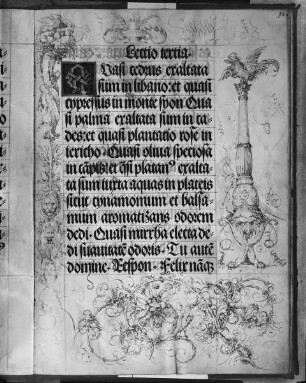 Lectio tertia
Quasi cedrus exaltata
sum in libano: et quasi
cypressus in monte syon Qua
si palma exaltata sum in ca
des: et quasi plantatio rose in
iericho · Quasi oliua speciosa
in cāpis: et q̄si platan⁹ exalta
ta sum iuxta aquas in plateis
sicut cynamomum et balsa-
mum aromatizans odorem
dedi · Quasi mirrha electa de-
di suauitatē odoris · Tu autē
domine · Respon · Felix nāq̄